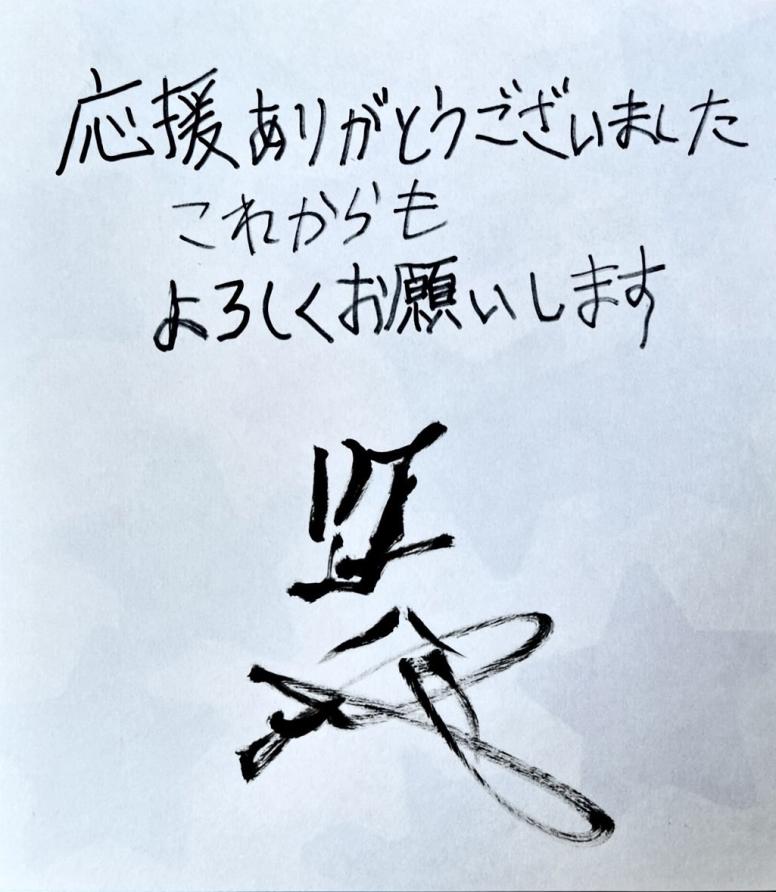 応援ありがとうございました
これからも
よろしくお願いします